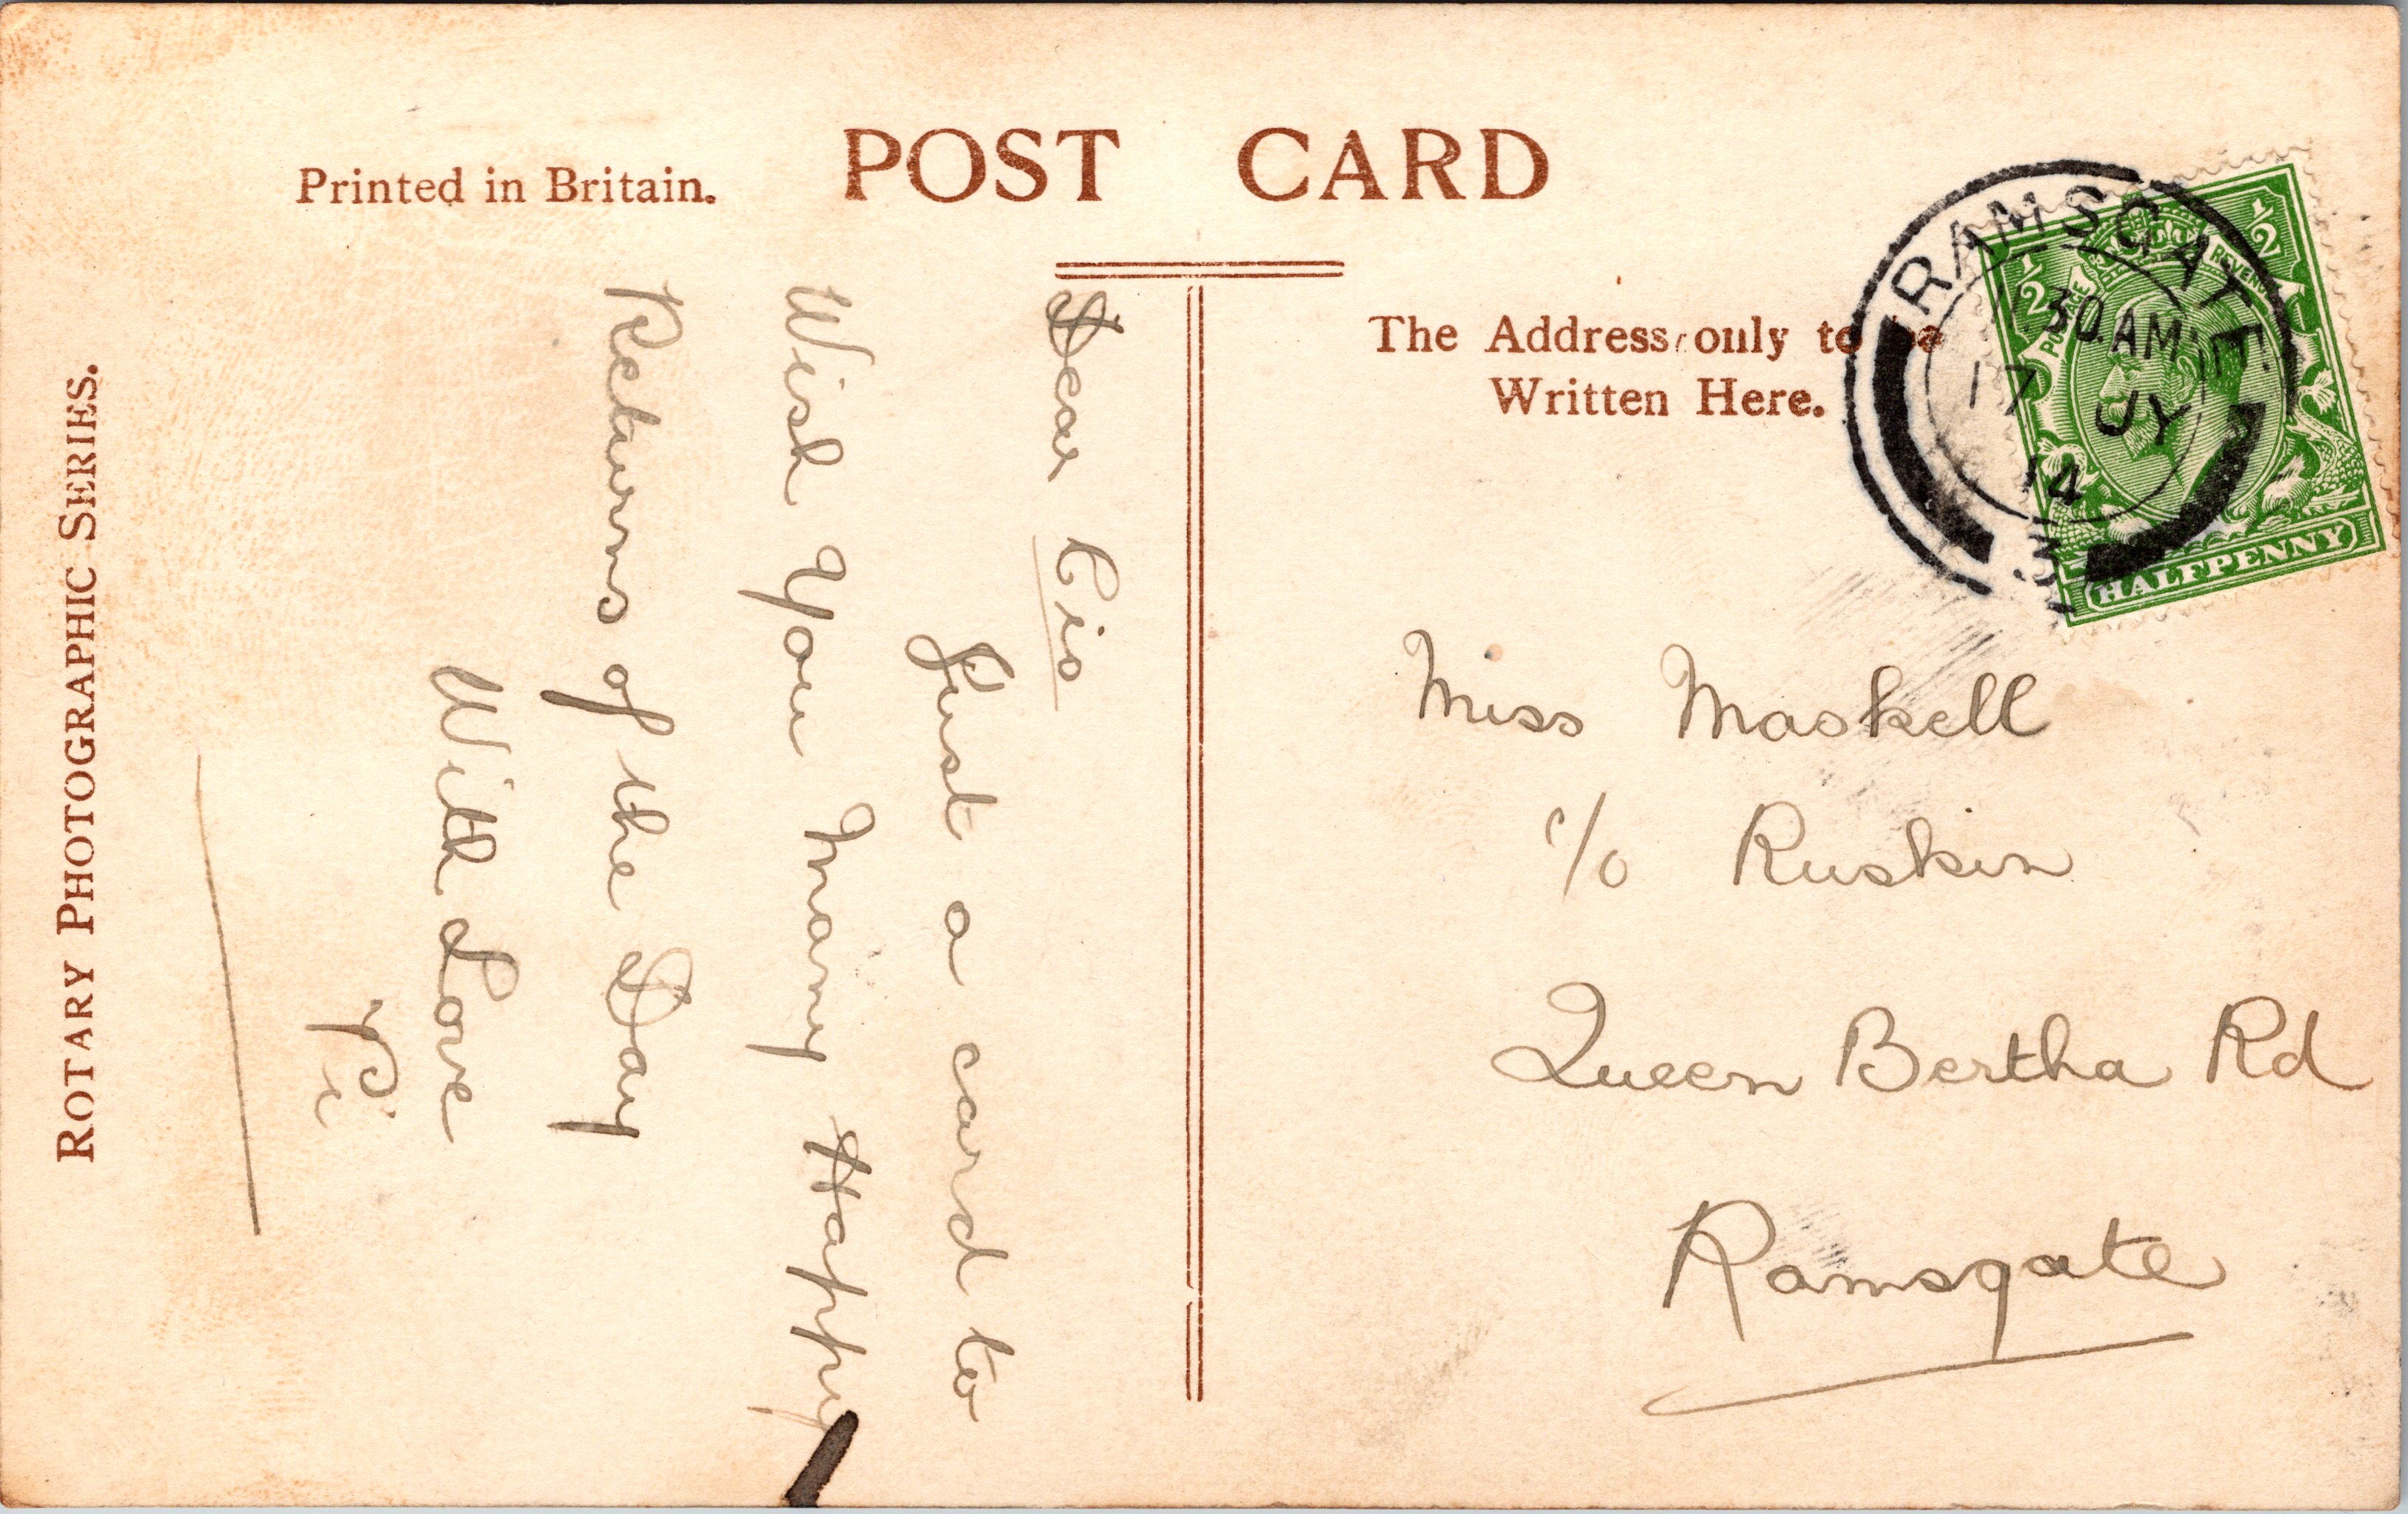 POST CARD
Printed in Britain.
The Address only to be
Written Here.
ROTARY PHOTOGRAPHIC SERIES.
Dear Cis
Just a card to
Wish You Many Happy
Returns of the Day
With Love
Miss Maskell
c/o Ruskin
Queen Bertha Rd
Ramsgate
RAMSGATE
30 AM
17 JY
14
½
½
POSTAGE
REVENUE
HALFPENNY